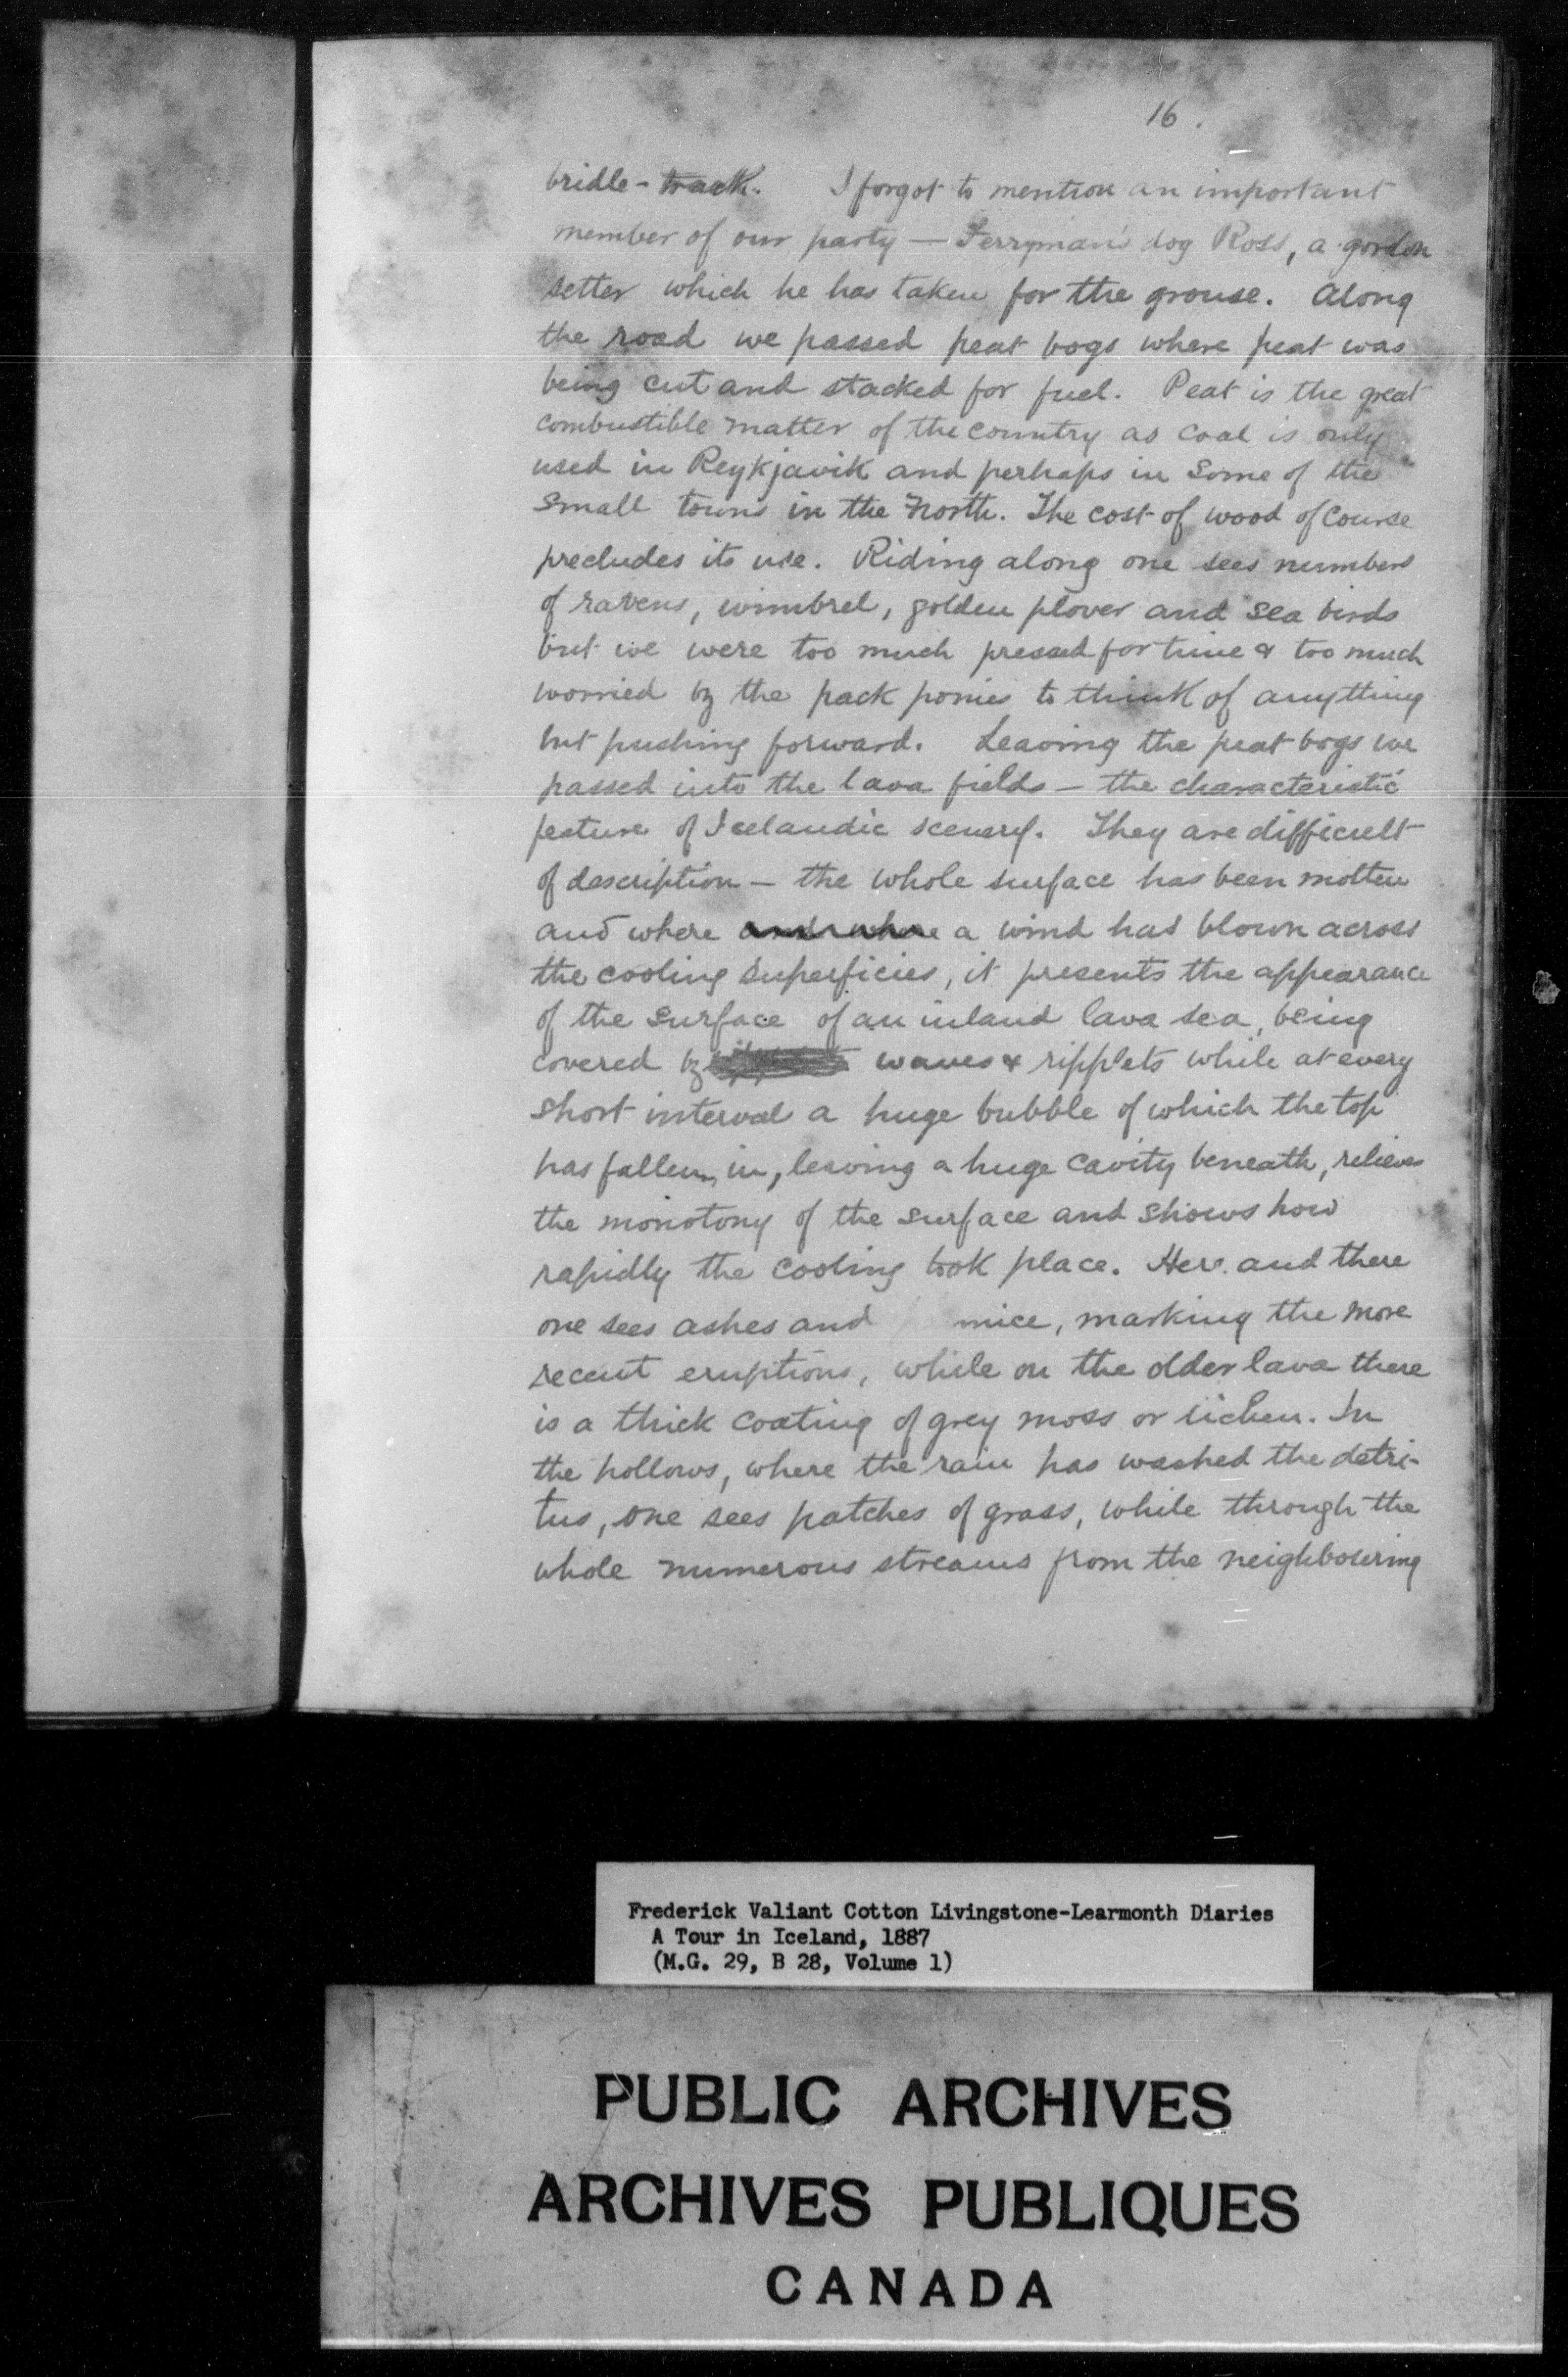 16.
bridle-track. I forgot to mention an important
member of our party — Ferryman's dog Ross, a gordon
setter which he has taken for the grouse. Along
the road we passed peat bogs where peat was
being cut and stacked for fuel. Peat is the great
combustible matter of the country as coal is only
used in Reykjavik and perhaps in some of the
small towns in the North. The cost of wood of course
precludes its use. Riding along one sees numbers
of ravens, wimbrel, golden plover and sea birds
but we were too much pressed for time & too much
worried by the pack ponies to think of anything
but pushing forward. Leaving the peat bogs we
passed into the lava fields — the characteristic
feature of Icelandic scenery. They are difficult
of description — the whole surface has been molten
and where and where a wind has blown across
the cooling superficies, it presents the appearance
of the surface of an inland lava sea, being
covered by waves & ripplets while at every
short interval a huge bubble of which the top
has fallen in, leaving a huge cavity beneath, relieves
the monotony of the surface and shows how
rapidly the cooling took place. Here and there
one sees ashes and mice, marking the more
recent eruptions, while on the older lava there
is a thick coating of grey moss or lichen. In
the hollows, where the rain has washed the detri-
tus, one sees patches of grass, while through the
whole numerous streams from the neighbouring
Frederick Valiant Cotton Livingstone-Learmonth Diaries
A Tour in Iceland, 1887
(M.G. 29, B 28, Volume 1)
PUBLIC ARCHIVES
ARCHIVES PUBLIQUES
CANADA